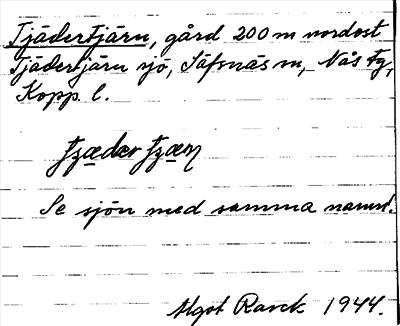 Tjädertjärn, gård 200 m nordost
Tjädertjärn sjö, Säfsnäs sn, Nås tg,
Kopp. l.
Se sjön med samma namn.
Algot Ranck 1944.